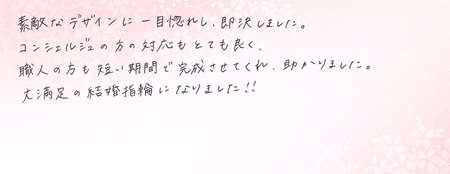 素敵なデザインに一目惚れし、即決しました。
コンシェルジュの方の対応もとても良く、
職人の方も短い期間で完成させてくれ、助かりました。
大満足の結婚指輪になりました!!